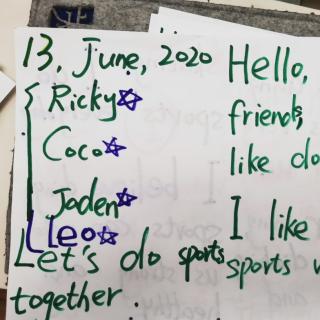 13. June, 2020
Ricky☆
Coco☆
Joden☆
Leo☆
Let's do sports
together.
Hello,
friends,
like do
I like
sports